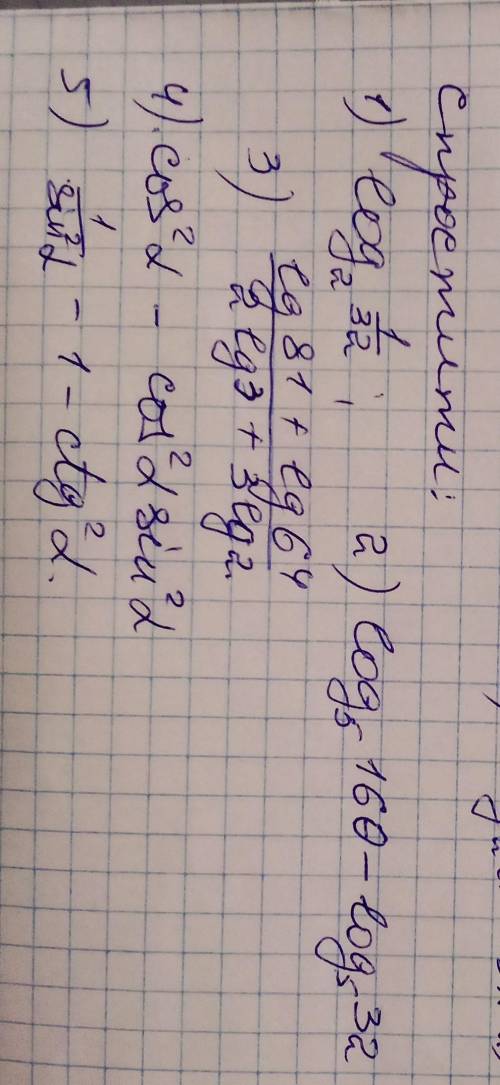 Спростити:
1) log₂ 1/32 ; 2) log₅ 160 - log₅ 32
3) (lg 81 + lg 64) / (2 lg 3 + 3 lg 2)
4) cos²α - cos²α sin²α
5) 1/sin²α - 1 - ctg²α.